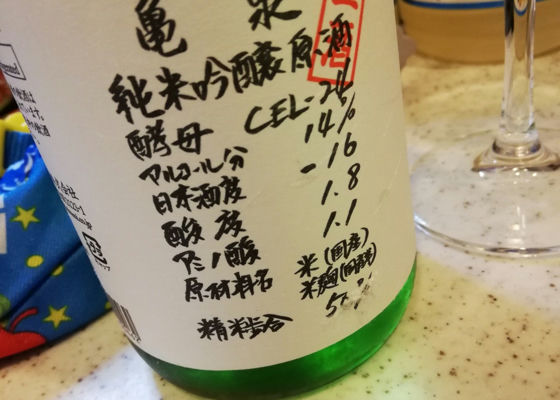 亀泉
純米吟醸原酒
酵母 CEL-24
アルコール分 14%
日本酒度 -16
酸度 1.8
アミノ酸 1.1
原材料名 米(国産)
米麹(国産米)
精米歩合